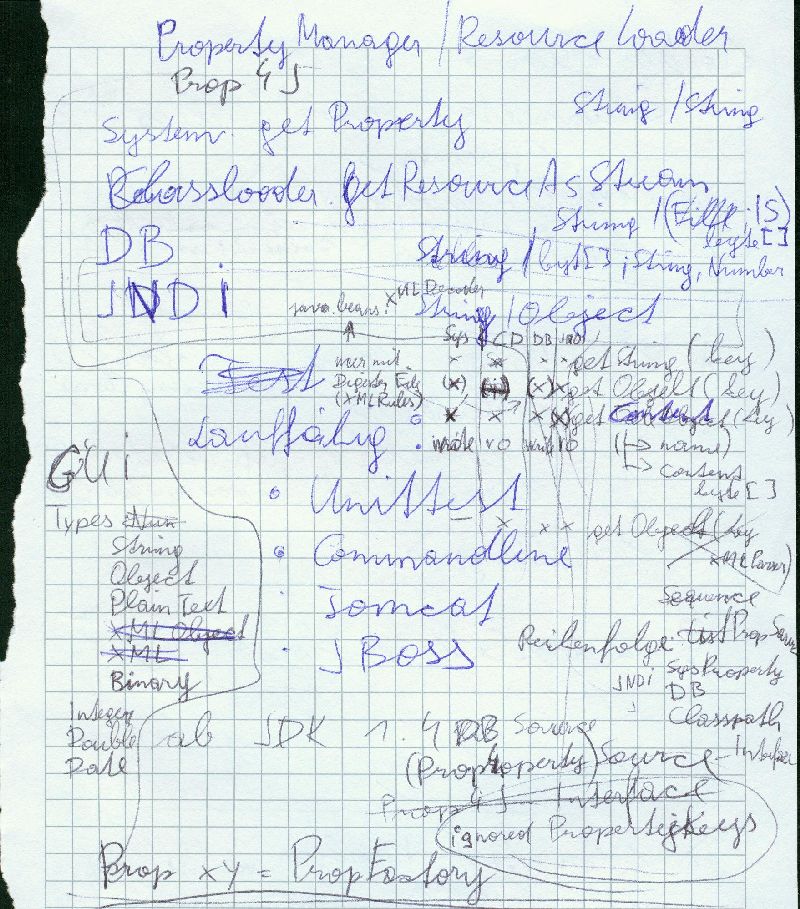 Property Manager / Resource Loader
Prop 4 J
String / String
System. get Property
Classloader. getResourceAsStream
String / (
; IS)
byte []
DB
String / byt[] ; String, Number
JNDI
java.beans. XMLDecoder
String / Object
Sys CD DB
nur mit
x x getString (key)
Test
Digester File
(x) (x) x get Object (key)
(XMLRules)
Lauffähig :
x x x x get
(key)
write ro write ro
(↳ name)
↳ content
byte []
GUI
• Unittest
Types Num
x x x get Object (key
XML Parser)
String
• Commandline
Object
sequence
Plain Text
• Tomcat
XML Object
Reihenfolge: List Prop Source
XML
• JBoss
JNDI SysProperty
Binary
DB
Classpath
Integer
Double
ab JDK 1.4
DB Source
Date
(Prop4roperty) Source - Interface
Prop 4J - Interface
ignored PropertyKeys
Prop xy = PropFactory